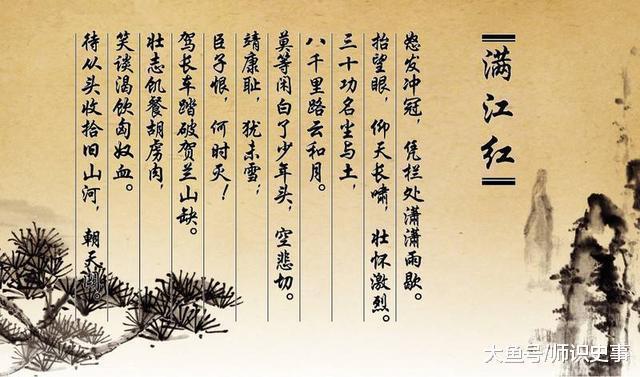 满江红
怒发冲冠，凭栏处潇潇雨歇。
抬望眼，仰天长啸，壮怀激烈。
三十功名尘与土，
八千里路云和月。
莫等闲白了少年头，空悲切。
靖康耻，犹未雪；
臣子恨，何时灭！
驾长车踏破贺兰山缺。
壮志饥餐胡虏肉，
笑谈渴饮匈奴血。
待从头收拾旧山河，朝天阙。
大鱼号/师识史事